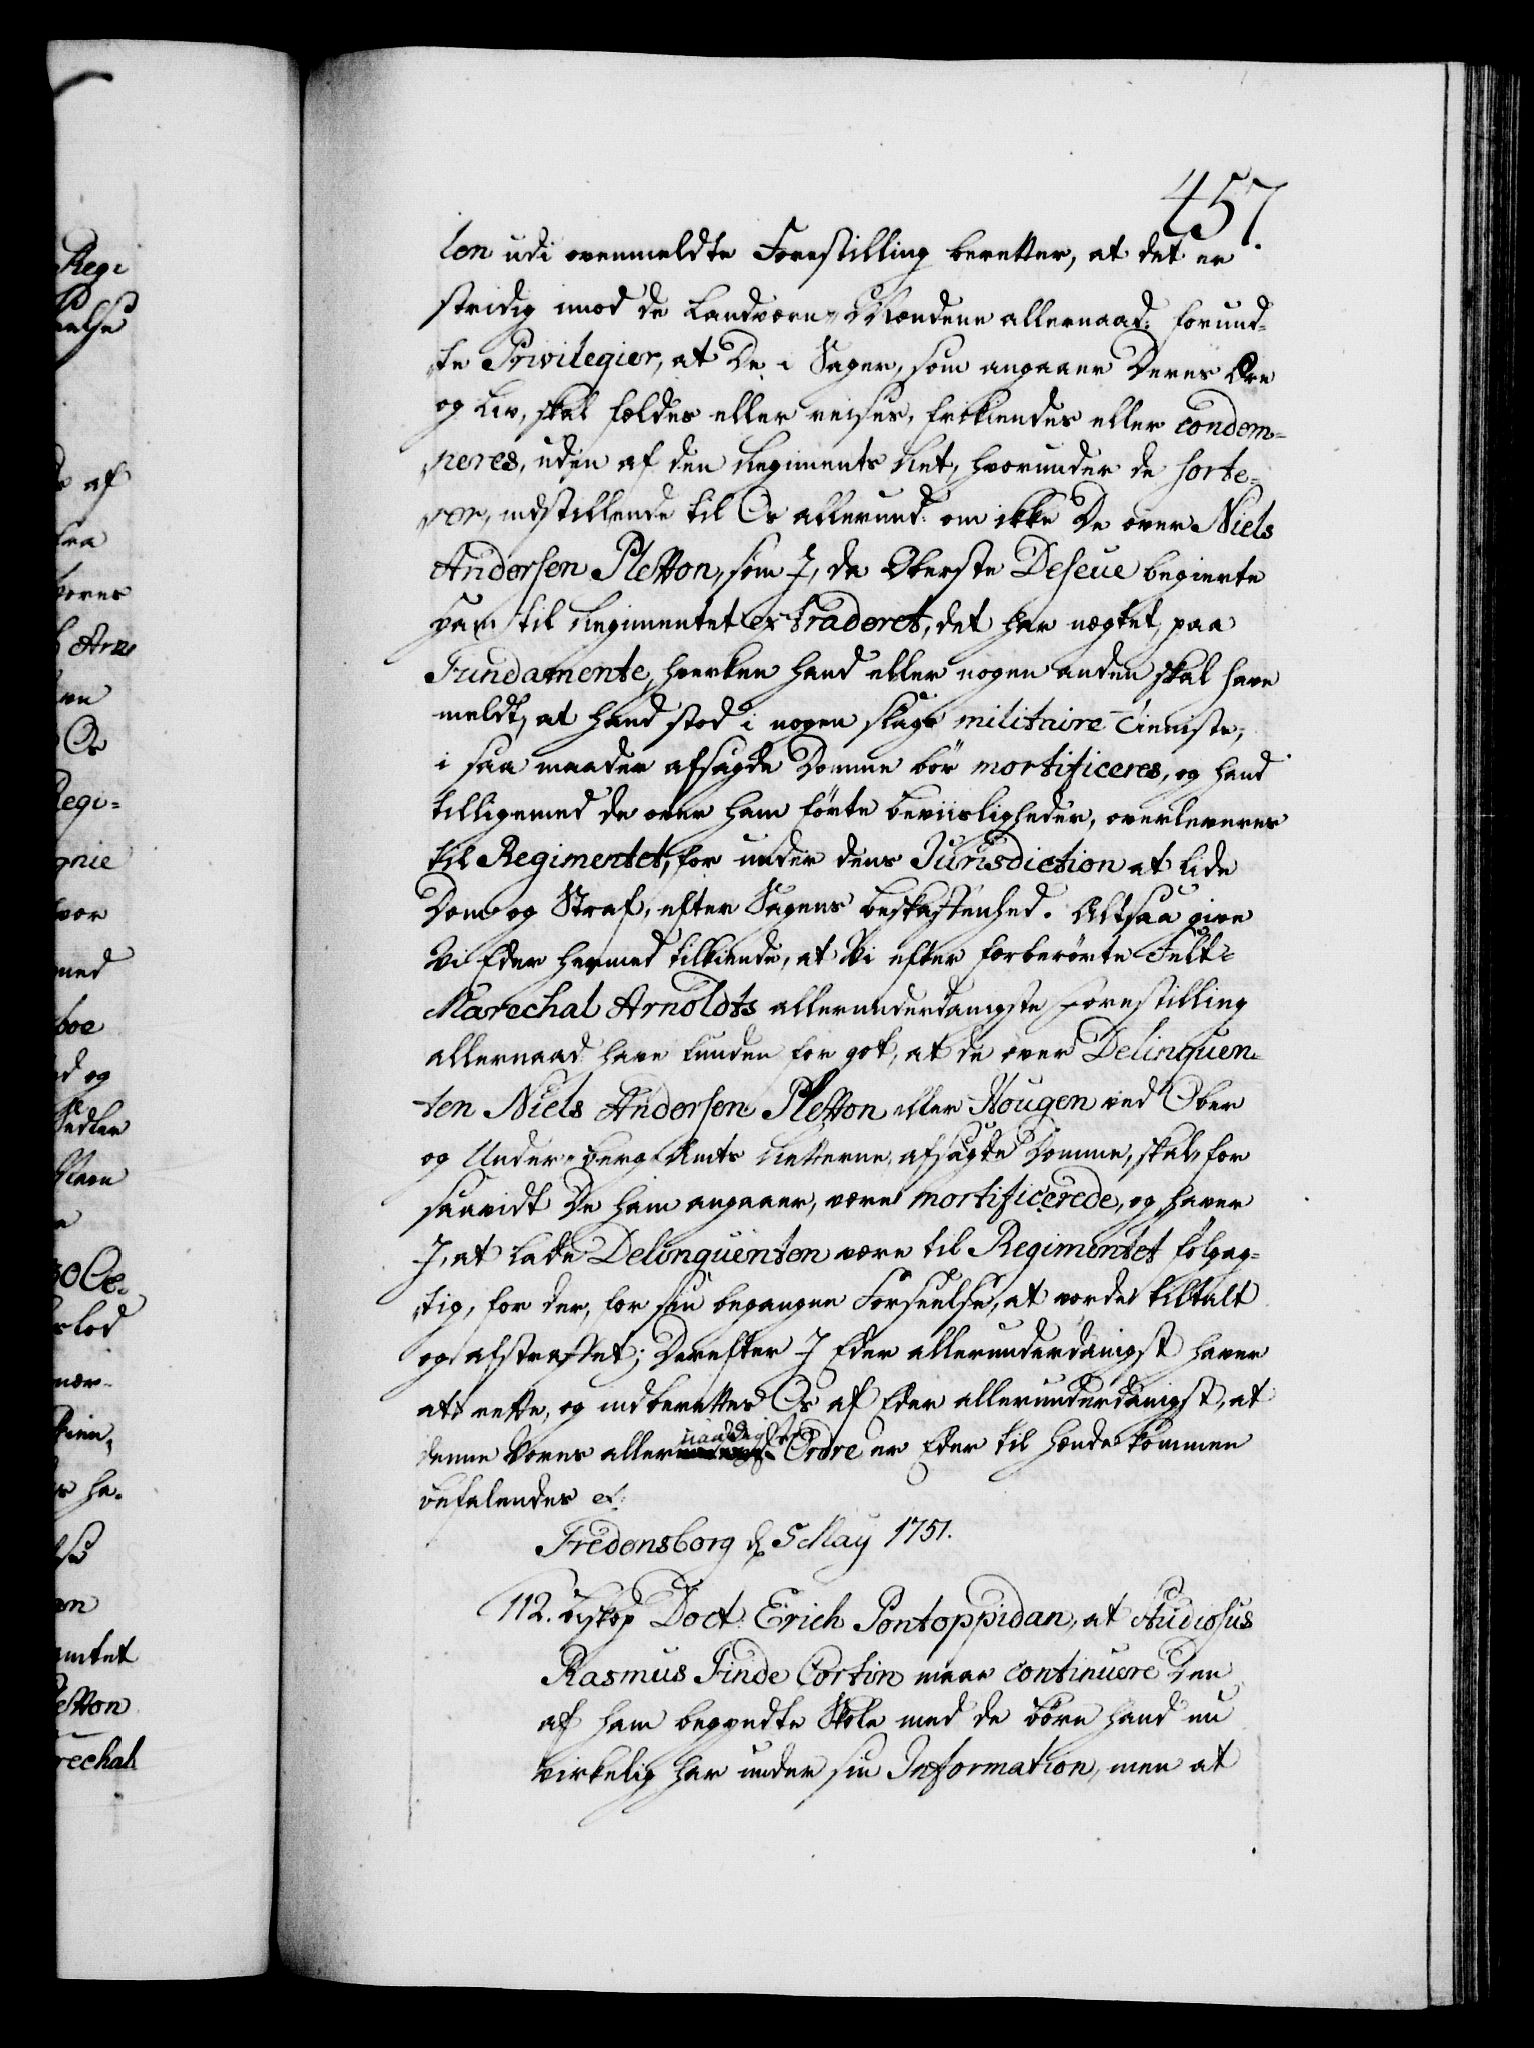 457.
len udi ovenmeldte Forestilling beretter, at det er
stridig imod de Landværn-Mændene allernaad: forund-
te Privilegier, at De i Sager, som angaaer Deres Ære
og Liv, skal fældes eller reises, frikiendes eller condem-
neres, uden af den Regiments Ret, hvorunder de sorte-
rer, indstillende til Os allerund: om ikke De over Niels
Andersen Pletton, som I, da Oberste Deseue begierte
ham til Regimentet extraderet, det har nægtet, paa
Fundamente, hverken hand eller nogen anden skal have
meldt, at hand stod i nogen slags militaire-Tienniste,
i saa maader afsagde Domme bör mortificeres, og hand
tilligemed de over ham förte beviisligheder, overleveres
til Regimentet, for under dens Jurisdiction at lide
Dom og Straf, efter Sagens beskaffenhed. Altsaa give
Vi Eder hermed tilkiende, at Vi efter forberörte Felt-
Marechal Arnoldts allerunderdanigste Forestilling
allernaad have funden for got, at de over Delinquen-
ten Niels Andersen Pletton eller Hougen ved Ober
og Under-Berg-Amts Retterne, afsagde Domme, skal, for
saavidt De ham angaaer, være mortificerede, og haver
I, at lade Delinquenten være til Regimentet fölgag-
tig, for der, for sin begangne Forseelse, at vorde tiltalt
og afstraffet; Derefter I Eder allerunderdanigst haver
at rette, og indberettes Os af Eder allerunderdanigst, at
denne Vores allernaadigste Ordre er Eder til hænde kommen
befalendes etc:
Fredensborg d. 5 May 1751.
112. Biskop Doct: Erich Pontoppidan, at Studiosus
Rasmus Finde Cortin maae continuere Den
af ham begyndte Skole med de Börn hand nu
virkelig har under sin Information, men at